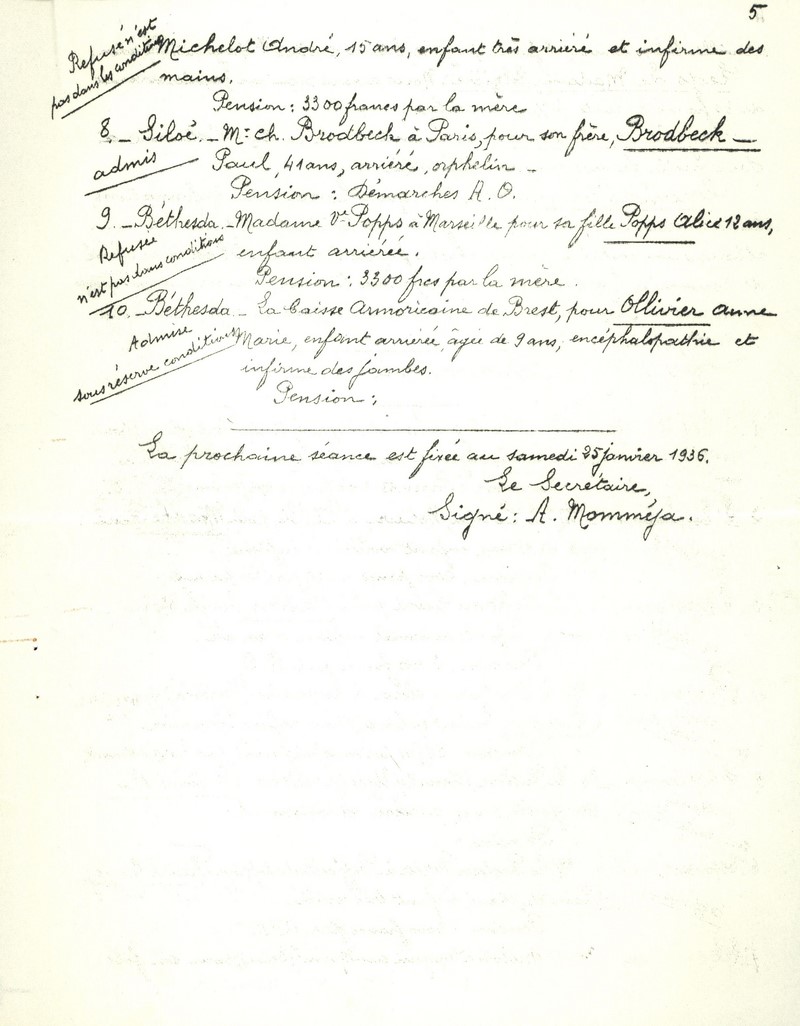 5
Refusé n'est
pas dans les conditions
Michelot André, 15 ans, enfant très arriéré et infirme des
mains.
Pension : 3300 francs par la mère
8. _ Siloé. _ Mr ch. Brodbeck à Paris, pour son frère, Brodbeck _
admis
Paul, 41 ans, arriéré, orphelin _
Pension : Démarches A. O.
9. _ Béthesda. _ Madame Ve Popps à Marseille pour sa fille Popps Alice 12 ans,
Refusée
n'est pas dans conditions
enfant arriérée.
Pension : 3300 frcs par la mère.
10. _ Béthesda _ La Caisse Armoricaine de Brest, pour Ollivier Anne
Admise
sous réserve conditions
Marie, enfant arriérée, âgée de 9 ans, encéphalopathie et
infirme des jambes.
Pension :
La prochaine séance est fixée au samedi 25 janvier 1936.
Le Secrétaire,
Signé : A. Momméja.